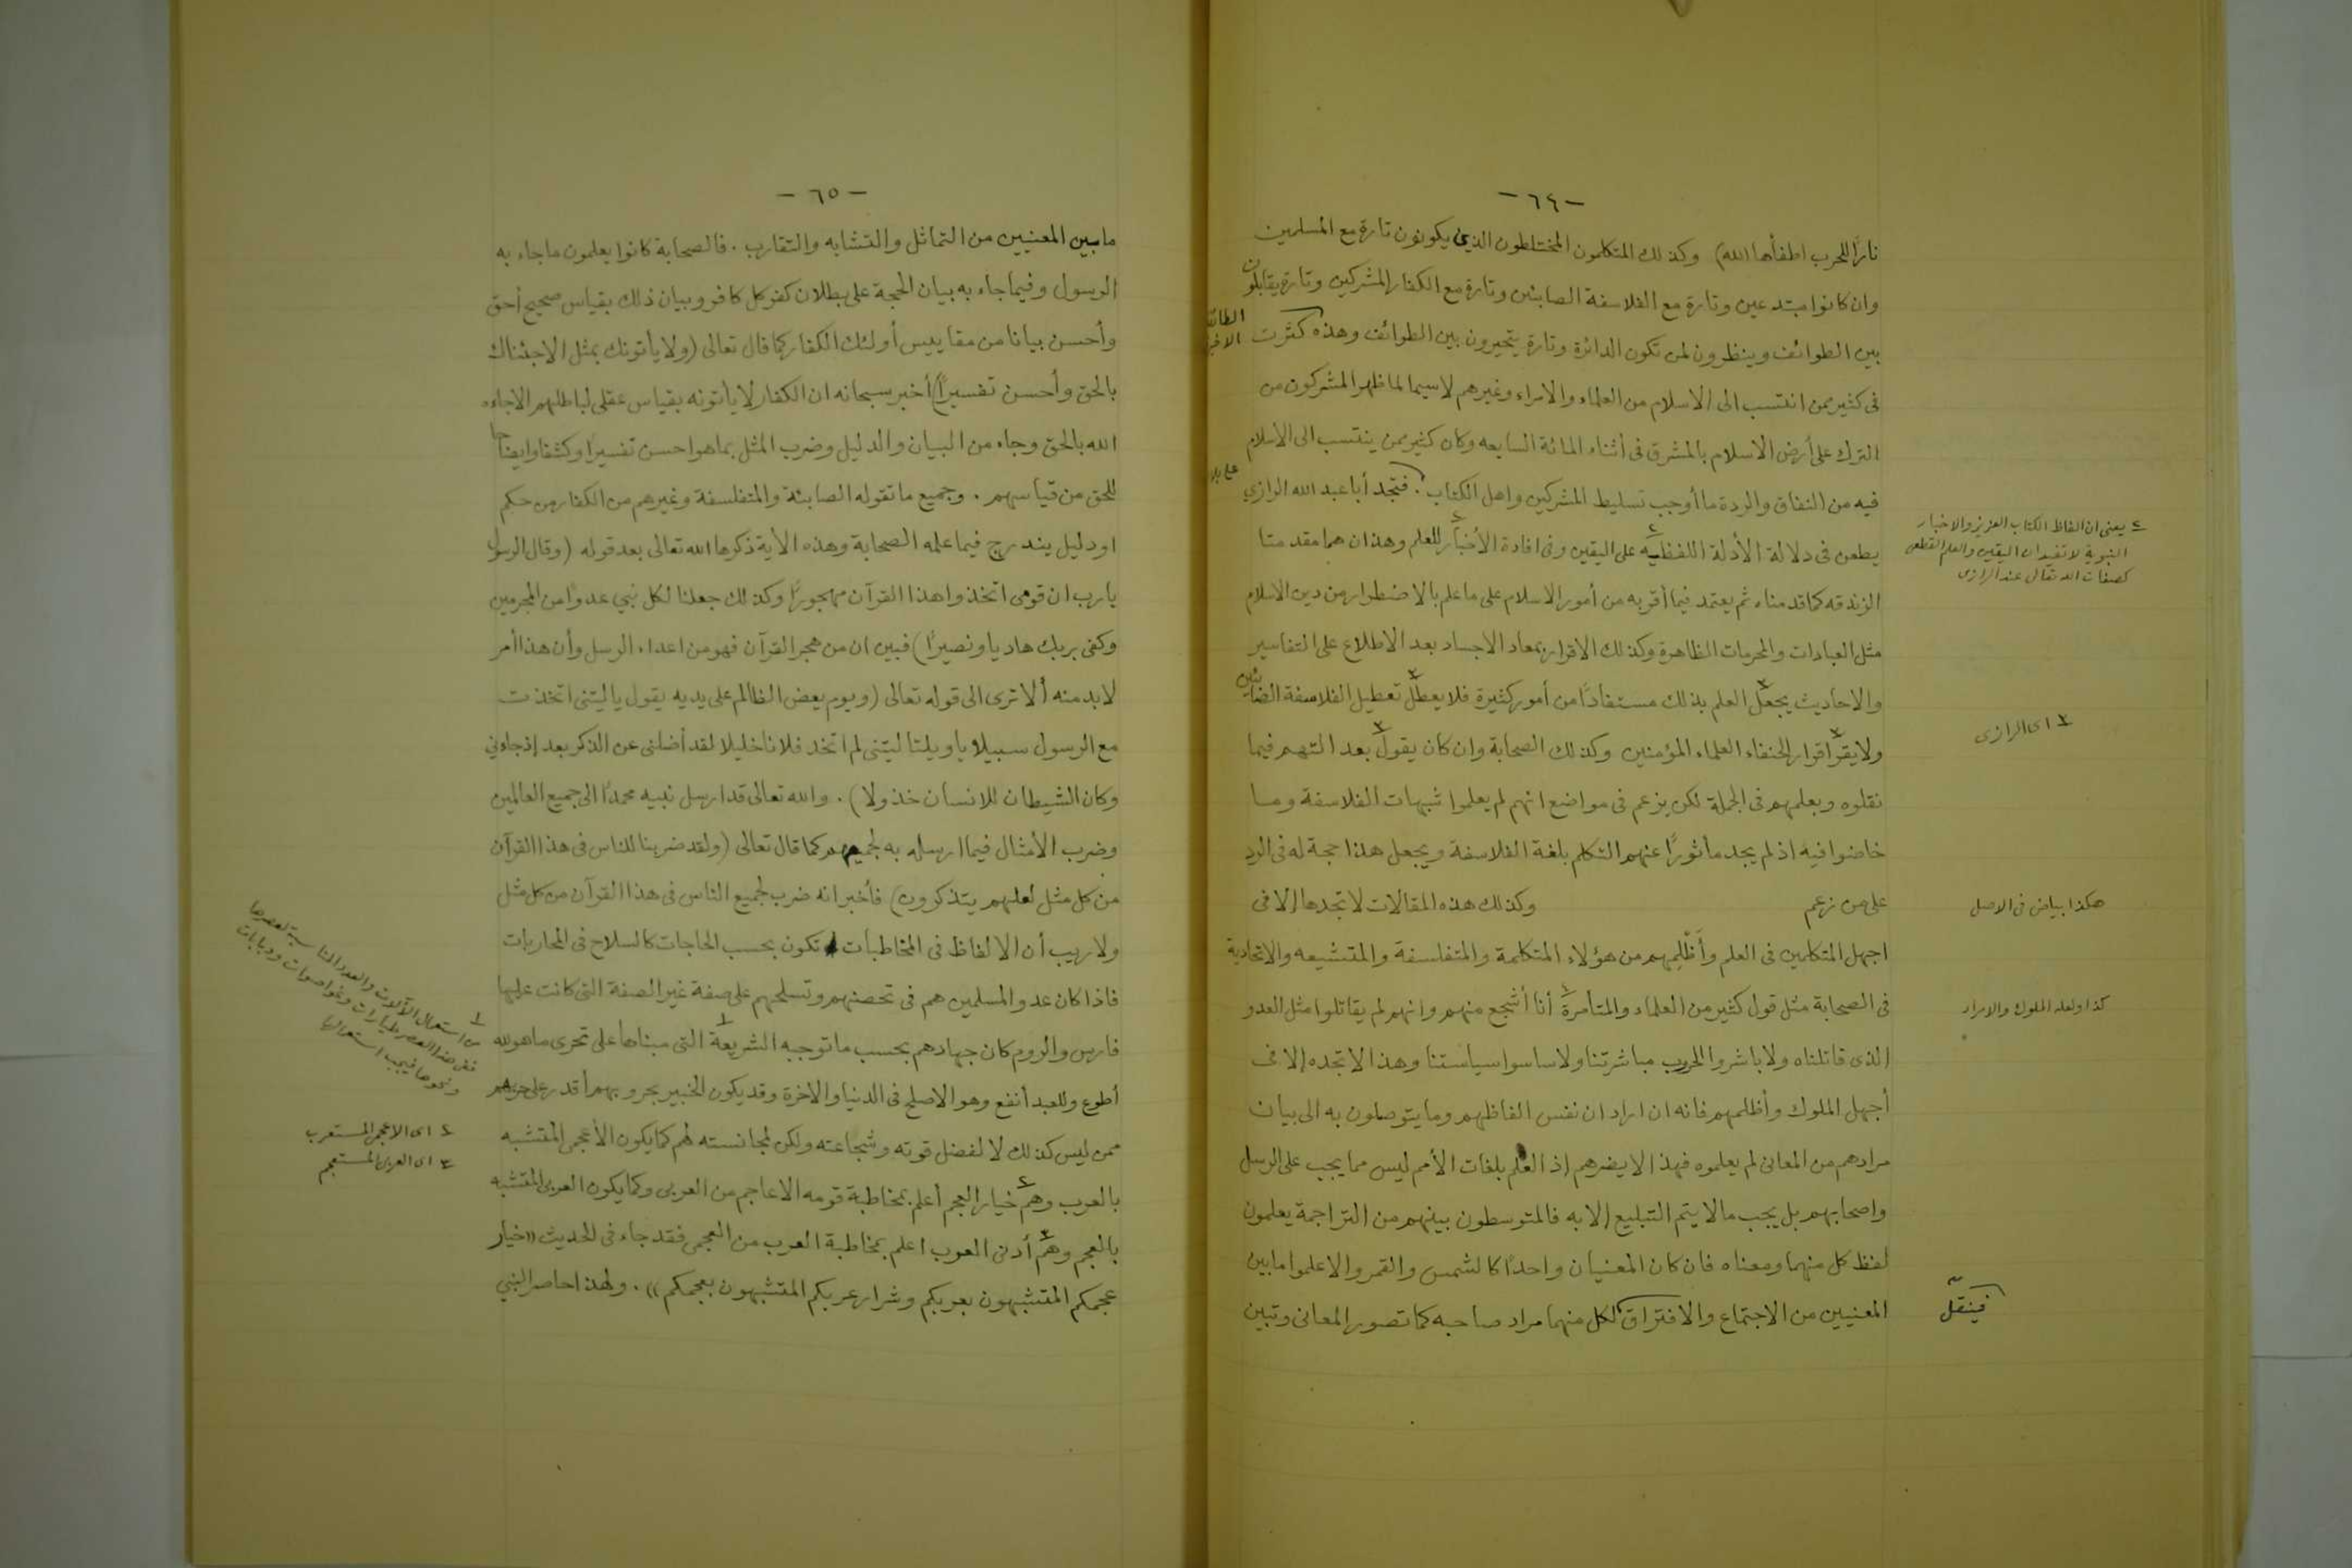 - ٦٤ -
ناراً للحرب اطفأها الله) وكذلك المتكلمون المختلطون الذين يكونون تارة مع المسلمين
وان كانوا مبتدعين وتارة مع الفلاسفة الصابئين وتارة مع الكفار المشركين وتارة يقابلون
بين الطوائف وينظرون لمن تكون الدائرة وتارة يتحيرون بين الطوائف وهذه كثرت
الطائفة الاخيرة
فى كثير ممن انتسب الى الاسلام من العلماء والامراء وغيرهم لاسيما لما ظهر المشركون من
الترك على أرض الاسلام بالمشرق فى أثناء المائة السابعه وكان كثير ممن ينتسب الى الاسلام
فيه من النفاق والردة ما أوجب تسليط المشركين واهل الكتاب . فتجد أبا عبد الله الرازي
يطعن فى دلالة الأدلة اللفظيه٢ على اليقين وفى افادة الأخبار٢ للعلم وهذان هما مقدمتا
٢ يعنى ان الفاظ الكتاب العزيز والاخبار
النبوية لا تفيدان اليقين والعلم القطعى
كصفات الله تعالى عند الرازى
الزندقه كما قدمناه ثم يعتمد فيما أقر به من أمور الاسلام على ما علم بالاضطرار من دين الاسلام
مثل العبادات والمحرمات الظاهرة وكذلك الاقرار بمعاد الاجساد بعد الاطلاع على التفاسير
والاحاديث يجعل٣ العلم بذلك مستفاداً من أمور كثيرة فلا يعطل٣ تعطيل الفلاسفة الصابئين
ولا يقر٣ اقرار الحنفاء العلماء المؤمنين وكذلك الصحابة وان كان يقول٣ بعد التهم فيما
٣ اى الرازى
نقلوه وبعلمهم فى الجملة لكن يزعم فى مواضع انهم لم يعلموا شبهات الفلاسفة وما
خاضوا فيه اذ لم يجد مأثوراً عنهم التكلم بلغة الفلاسفة ويجعل هذا حجة له فى الرد
على من زعم وكذلك هذه المقالات لا تجدها الا فى
هكذا بياض فى الاصل
اجهل المتكلمين فى العلم وأظلمهم من هؤلاء المتكلمة والمتفلسفة والمتشيعه والاتحادية
فى الصحابة مثل قول كثير من العلماء والمتأمرة٤ أنا أشجع منهم وانهم لم يقاتلوا مثل العدو
كذا ولعله الملوك والامراء
الذى قاتلناه ولا باشروا الحروب مباشرتنا ولا ساسوا سياستنا وهذا لا تجده الا فى
أجهل الملوك وأظلمهم فانه ان اراد ان نفس الفاظهم وما يتوصلون به الى بيان
مرادهم من المعانى لم يعلموه فهذا لا يضرهم إذ العلم بلغات الأمم ليس مما يجب على الرسل
واصحابهم بل يجب ما لا يتم التبليغ الا به فالمتوسطون بينهم من التراجمة يعلمون
لفظ كل منهما ومعناه فان كان المعنيان واحداً كالشمس والقمر والا علموا ما بين
المعنيين من الاجتماع والافتراق لكل منهما مراد صاحبه كما تصور المعانى وتبين
فينقل
- ٦٥ -
ما بين المعنيين من التماثل والتشابه والتقارب . فالصحابة كانوا يعلمون ما جاء به
الرسول وفيما جاء به بيان الحجة على بطلان كفر كل كافر وبيان ذلك بقياس صحيح أحق
وأحسن بيانا من مقاييس أولئك الكفار كما قال تعالى (ولا يأتونك بمثل الا جئناك
بالحق وأحسن تفسيراً) أخبر سبحانه ان الكفار لا يأتونه بقياس عقلى لباطلهم الا جاءه
الله بالحق وجاء من البيان والدليل وضرب المثل بما هو احسن تفسيراً وكشفا وايضاحا
للحق من قياسهم . وجميع ما تقوله الصابئة والمتفلسفة وغيرهم من الكفار من حكم
او دليل يندرج فيما علمه الصحابة وهذه الأية ذكرها الله تعالى بعد قوله (وقال الرسول
يارب ان قومى اتخذوا هذا القرآن مهجوراً وكذلك جعلنا لكل نبي عدواً من المجرمين
وكفى بربك هاديا ونصيراً) فبين ان من هجر القرآن فهو من اعداء الرسل وأن هذا أمر
لا بد منه ألا ترى الى قوله تعالى (ويوم يعض الظالم على يديه يقول يا ليتنى اتخذت
مع الرسول سبيلا يا ويلتا ليتنى لم اتخذ فلانا خليلا لقد أضلنى عن الذكر بعد إذ جاءني
وكان الشيطان للانسان خذولا) . والله تعالى قد ارسل نبيه محمداً الى جميع العالمين
وضرب الأمثال فيما ارسله به لجميعهم كما قال تعالى (ولقد ضربنا للناس فى هذا القرآن
من كل مثل لعلهم يتذكرون) فأخبر انه ضرب لجميع الناس فى هذا القرآن من كل مثل
ولا ريب أن الالفاظ فى المخاطبات تكون بحسب الحاجات كالسلاح فى المحاربات
فاذا كان عدو المسلمين هم فى تحصنهم وتسلحهم على صفة غير الصفة التى كانت عليها
فارس والروم كان جهادهم بحسب ما توجبه الشريعة١ التى مبناها على تحرى ما هو لله
أطوع وللعبد أنفع وهو الاصلح فى الدنيا والاخرة وقد يكون الخبير بحروبهم أقدر على حربهم
١ من استعمال الآلات والعدد المناسبة لعصرها
ففى هذا العصر طيارات وغواصات ودبابات
ونحوها فيجب استعمالها
ممن ليس كذلك لا لفضل قوته وشجاعته ولكن لمجانسته لهم كما يكون الأعجمى المتشبه
بالعرب وهم٢ خيار العجم أعلم بمخاطبة قومه الاعاجم من العربى وكما يكون العربى المتشبه
٢ اى الاعجمى المستعرب
٣ اى العربى المستعجم
بالعجم وهم٣ أدنى العرب اعلم بمخاطبة العرب من العجمى فقد جاء فى الحديث «خيار
عجمكم المتشبهون بعربكم وشرار عربكم المتشبهون بعجمكم» . ولهذا حاصر النبي